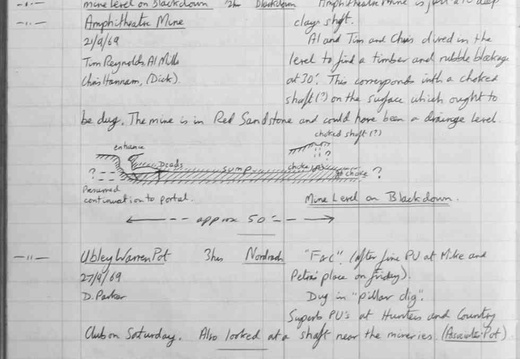 mine level on Blackdown 2hr Blackdown Amphitheatre Mine is just a 10' deep
—"— Amphitheatre Mine clay shaft.
21/9/69 Al and Tim and Chris dived in the
Tim Reynolds Al Mills level to find a timber and rubble blockage
Chris Hannam, (Dick). at 30'. This corresponds with a choked
shaft(?) on the surface which ought to
be dug. The mine is in Red Sandstone and could have been a drainage level
choked shaft (?)
entrance
? Deads sump choke ?
Presumed
continuation to portal.
Mine Level on Blackdown.
approx 50'
—"— Ubley Warren Pot 3hrs Nordrach "F&C". (After fine PU at Mike and
27/9/69 Petra's place on friday).
D. Parker Dig in "pillar dig".
Superb PU's at Hunters and Country
Club on Saturday. Also looked at a shaft near the mineries (Pot)